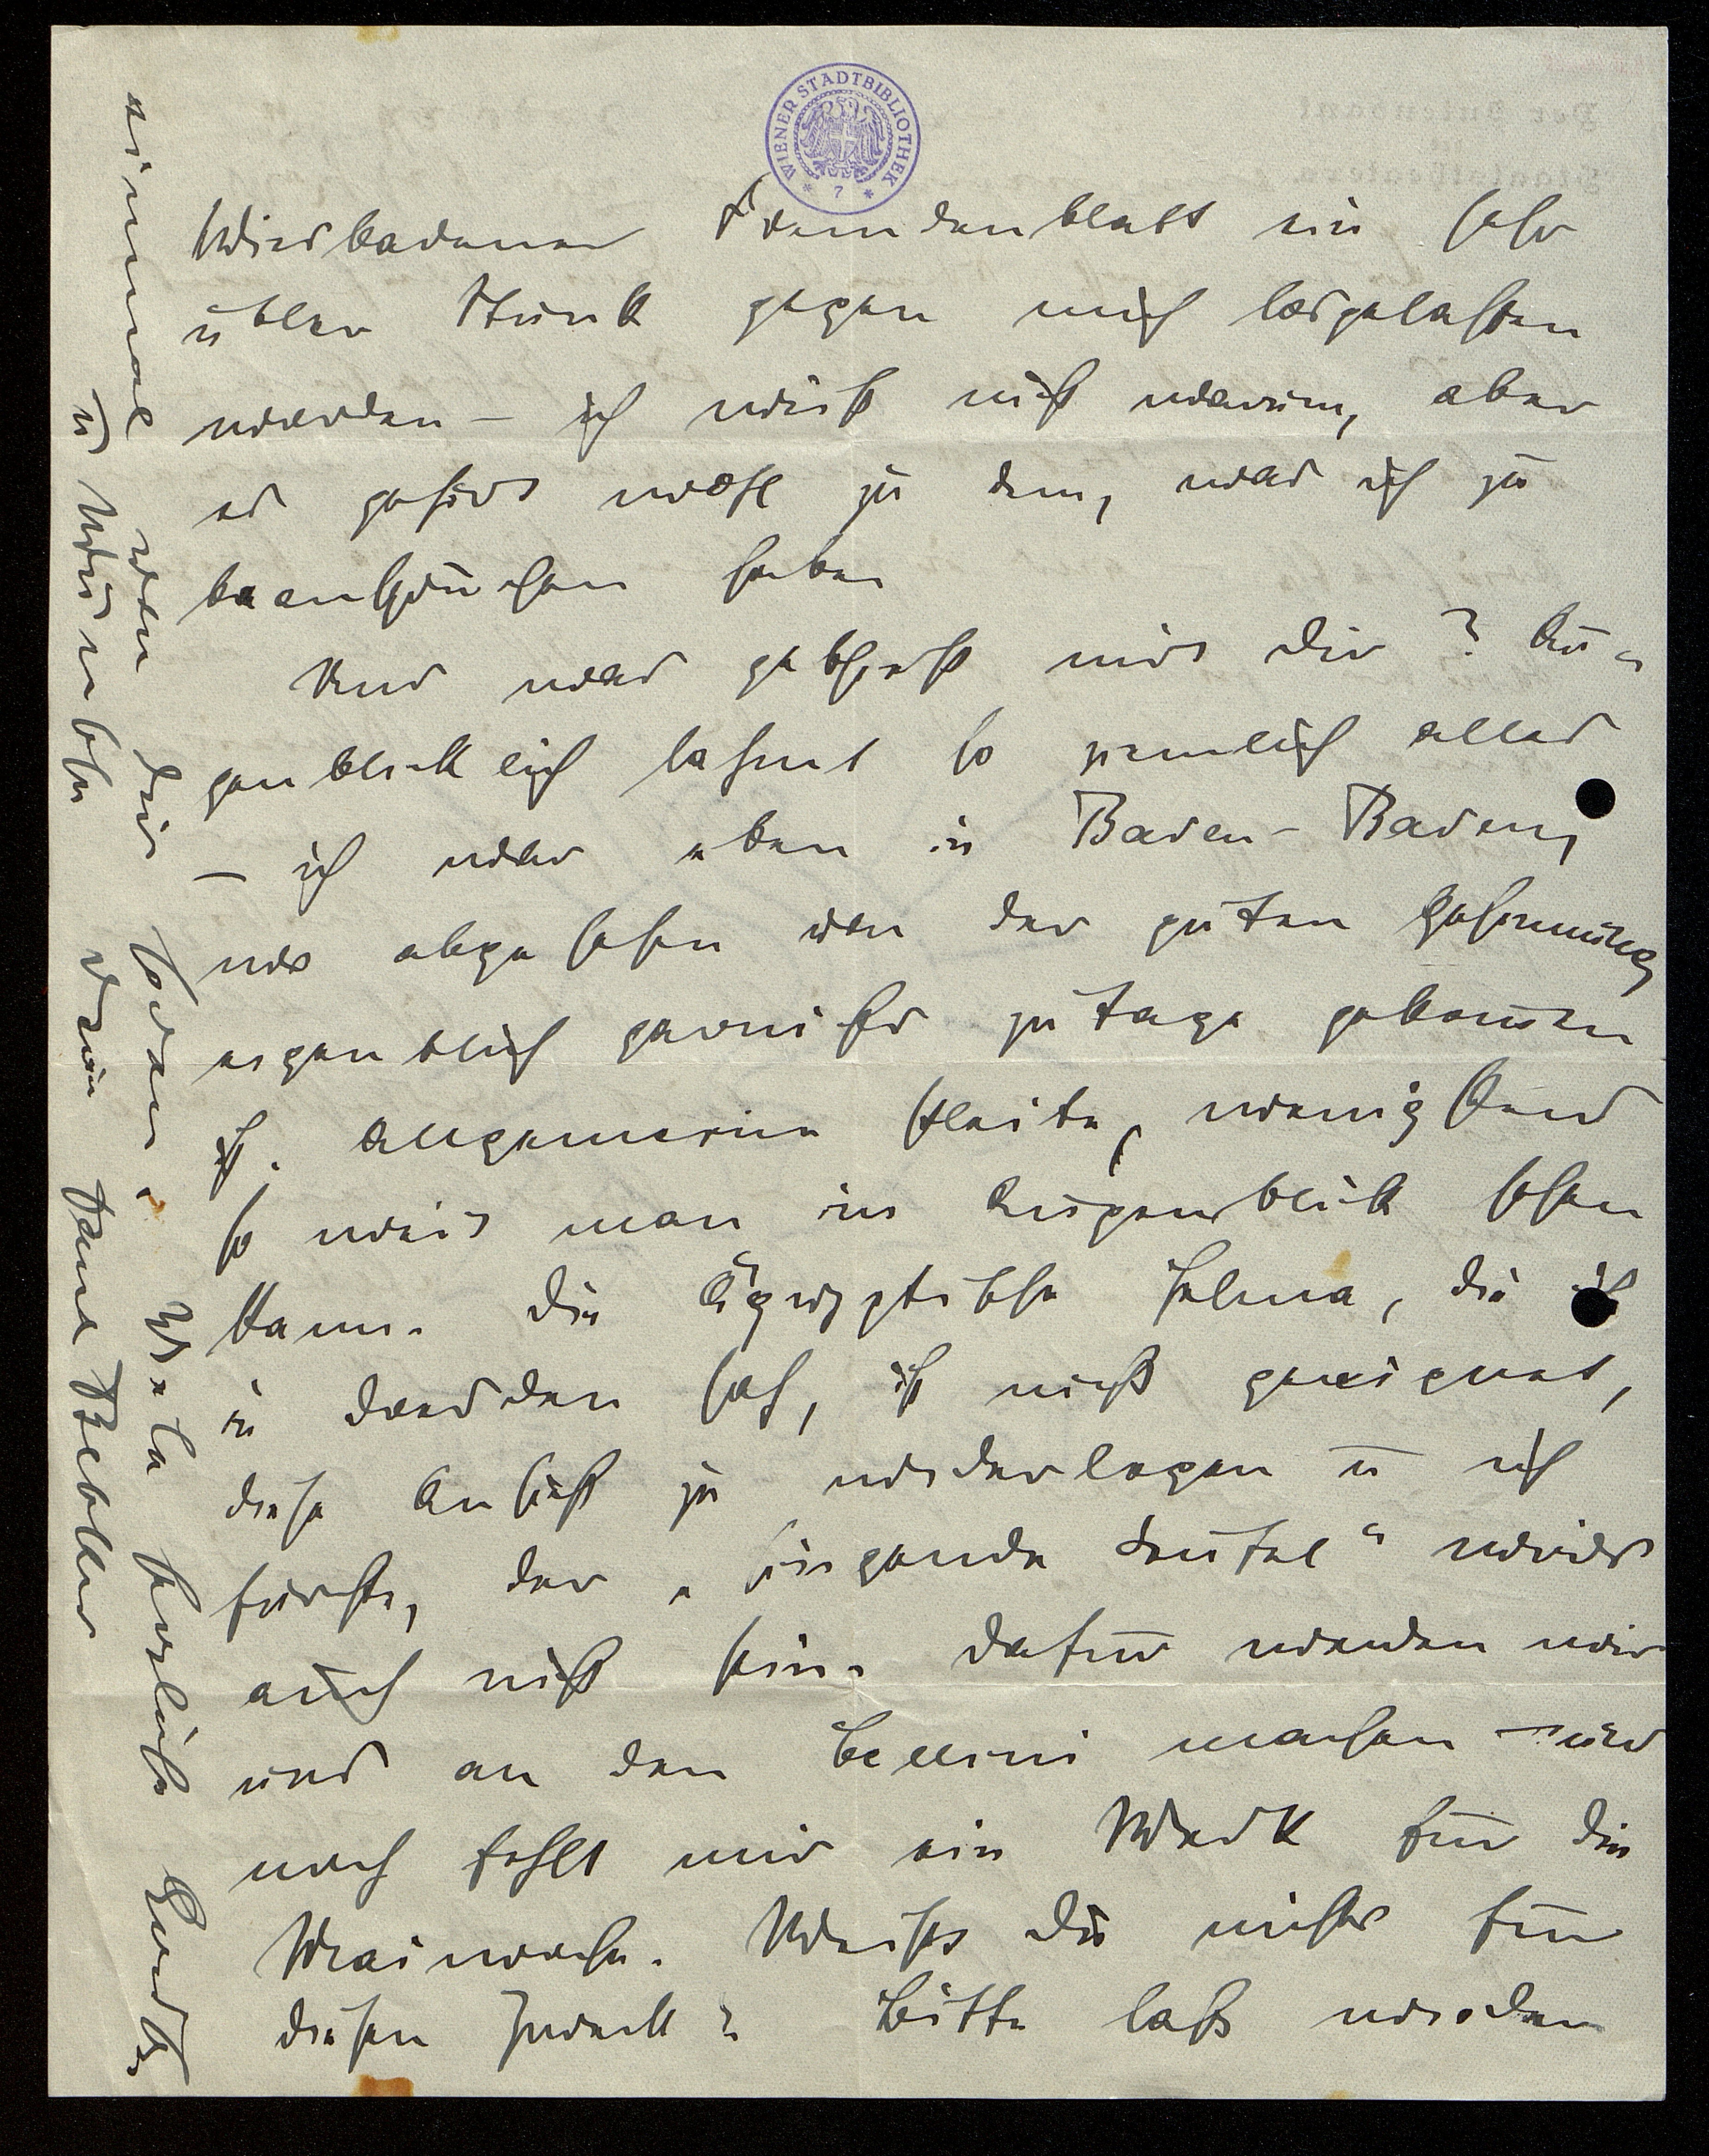 WIENER STADTBIBLIOTHEK
* 7 *
Wiesbadener Fremdenblatt ein sehr
übler Stunk gegen mich losgelassen
worden – ich weiss nicht warum, aber
es gehört wohl zu dem, was ich zu
beanspruchen habe
Und was geschieht mit Dir? Au-
genblicklich lahmt so ziemlich alles
– ich war eben in Baden-Baden,
wo abgesehen von der guten Gesinnung
eigentlich garnichts zutage gekommen
ist. Allgemeine Pleite, wenigstens
so weit man im Augenblick sehen
kann. Die Ägyptische Helena, die ich
in Dresden sah, ist nicht geeignet,
diese Ansicht zu widerlegen u ich
fürchte, der „singende Teufel" wirds
auch nicht sein. Dafür werden wir
uns an den Cellini machen – und
noch fehlt mir ein Werk für die
Maiwoche. Weisst Du nichts für
diesen Zweck? Bitte lass wieder
einmal von Dir hören. Viele herzliche Grüße
u Wünsche Dein Paul Bekker